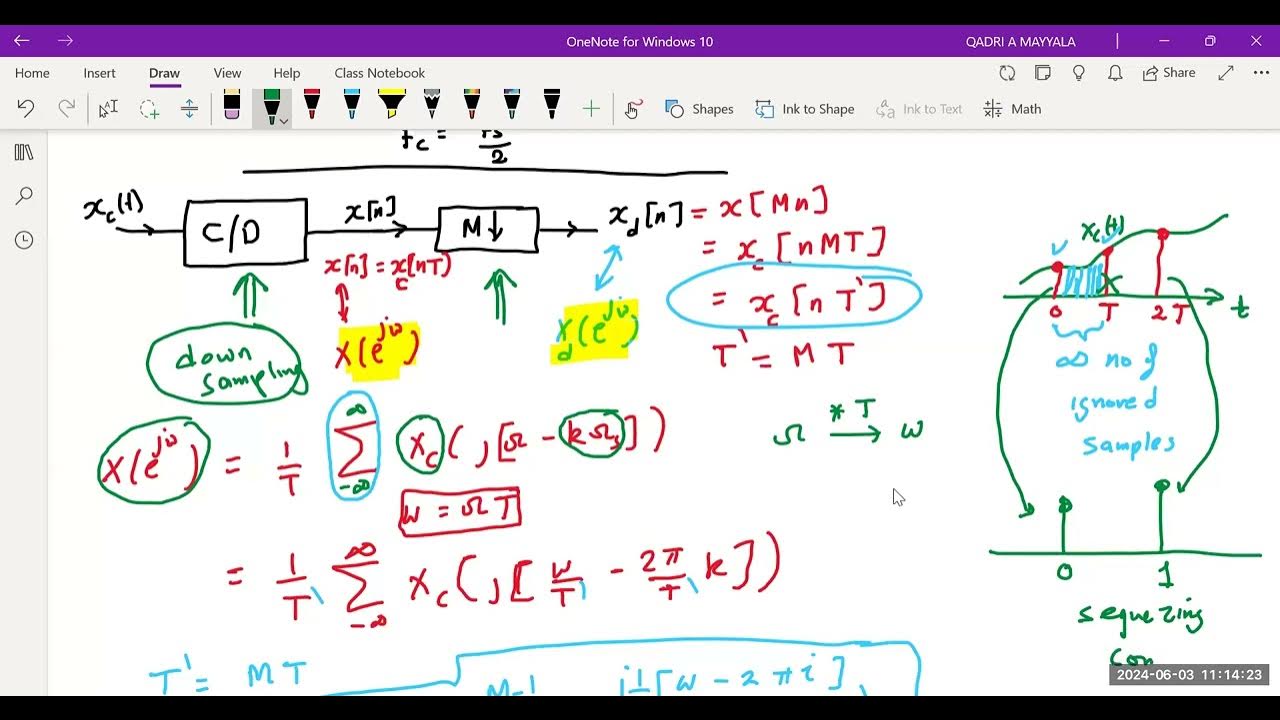 OneNote for Windows 10
QADRI A MAYYALA
Home Insert Draw View Help Class Notebook
Share
Shapes Ink to Shape Ink to Text Math
fc = fs/2
xc(t) C/D x[n] M↓ xd[n] = x[Mn]
x[n] = xc[nT)
= xc[nMT]
= xc[nT']
T' = MT
X(e^jω)
Xd(e^jω)
down
sampling
X(e^jω) = 1/T ∑_{-∞}^{∞} Xc(j[Ω - kΩs])
Ω *T → ω
ω = ΩT
= 1/T' ∑_{-∞}^{∞} Xc(j[ω/T' - 2π/T' k])
T' = MT
M-1 j 1/ [ω - 2πi]
xc(t)
0 T 2T t
∞ no of
ignored
samples
0 1
sequezing
con
2024-06-03 11:14:23